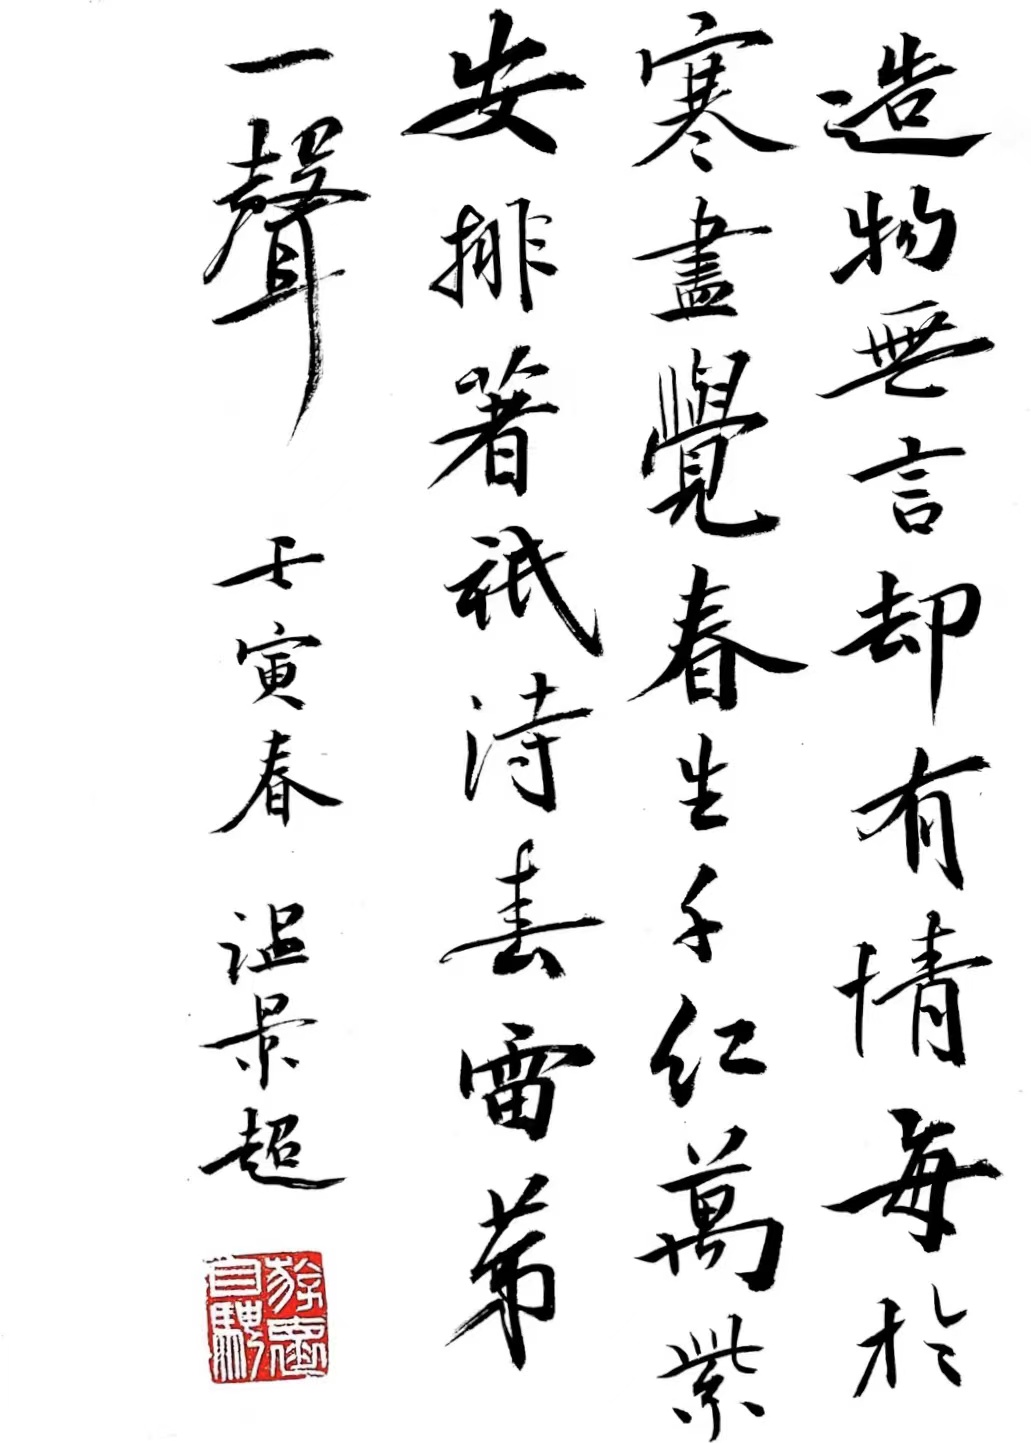 造物無言却有情每於
寒盡覺春生千紅萬紫
安排著祇待春雷第
一聲 壬寅春 温景超